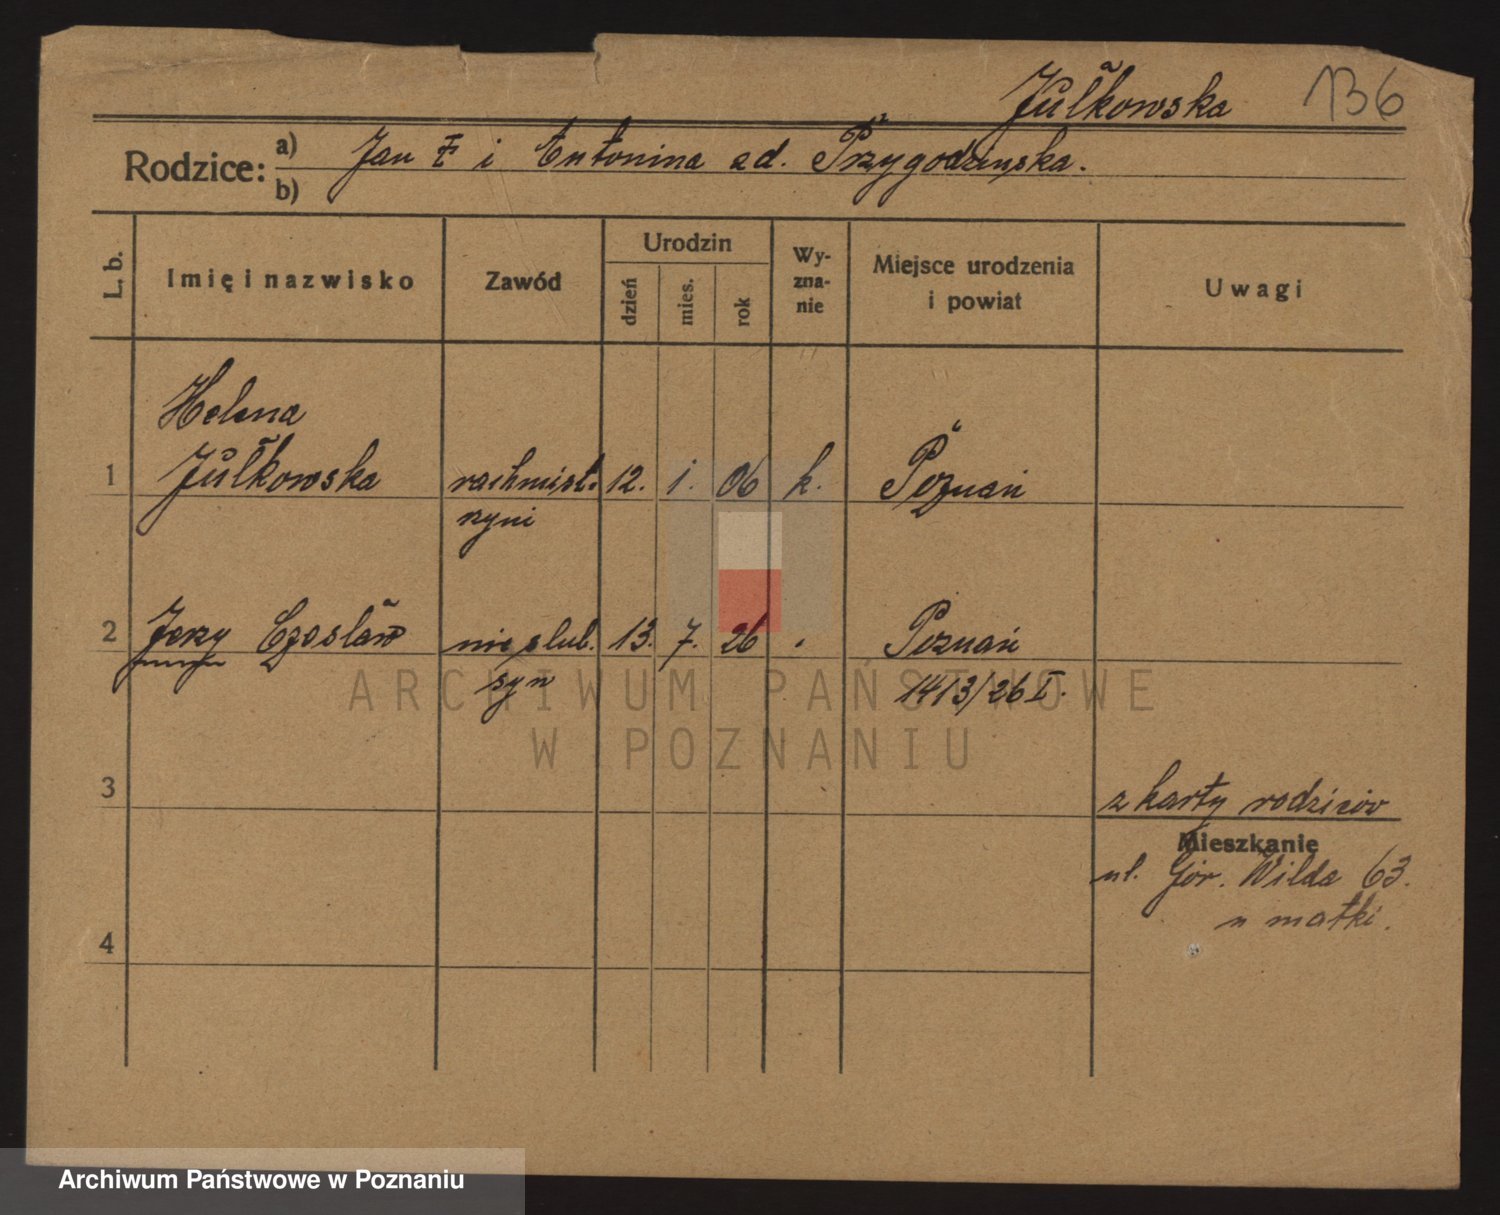 Jułkowska 136
Rodzice: a) Jan † i Antonina zd. Przygodzińska.
b)
L. b. Imię i nazwisko Zawód Urodzin dzień mies. rok Wyznanie Miejsce urodzenia i powiat Uwagi
Helena
1 Jułkowska rachmist. 12. 1. 06 k. Poznań
rzyni
2 Jerzy Czesław nieślub. 13. 7. 26 Poznań
syn 1413/26 I.
ARCHIWUM PAŃSTWOWE
W POZNANIU
3 z karty rodziców
Mieszkanie
ul. Gór. Wilda 63.
u matki.
4
Archiwum Państwowe w Poznaniu